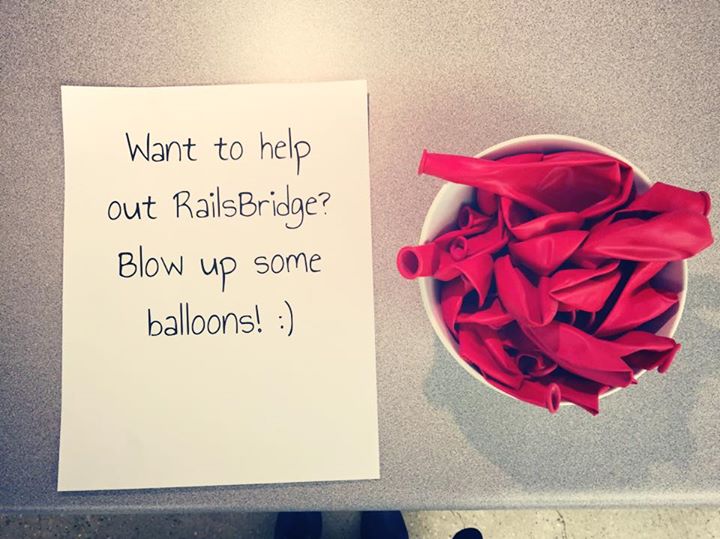 Want to help
out RailsBridge?
Blow up some
balloons! :)